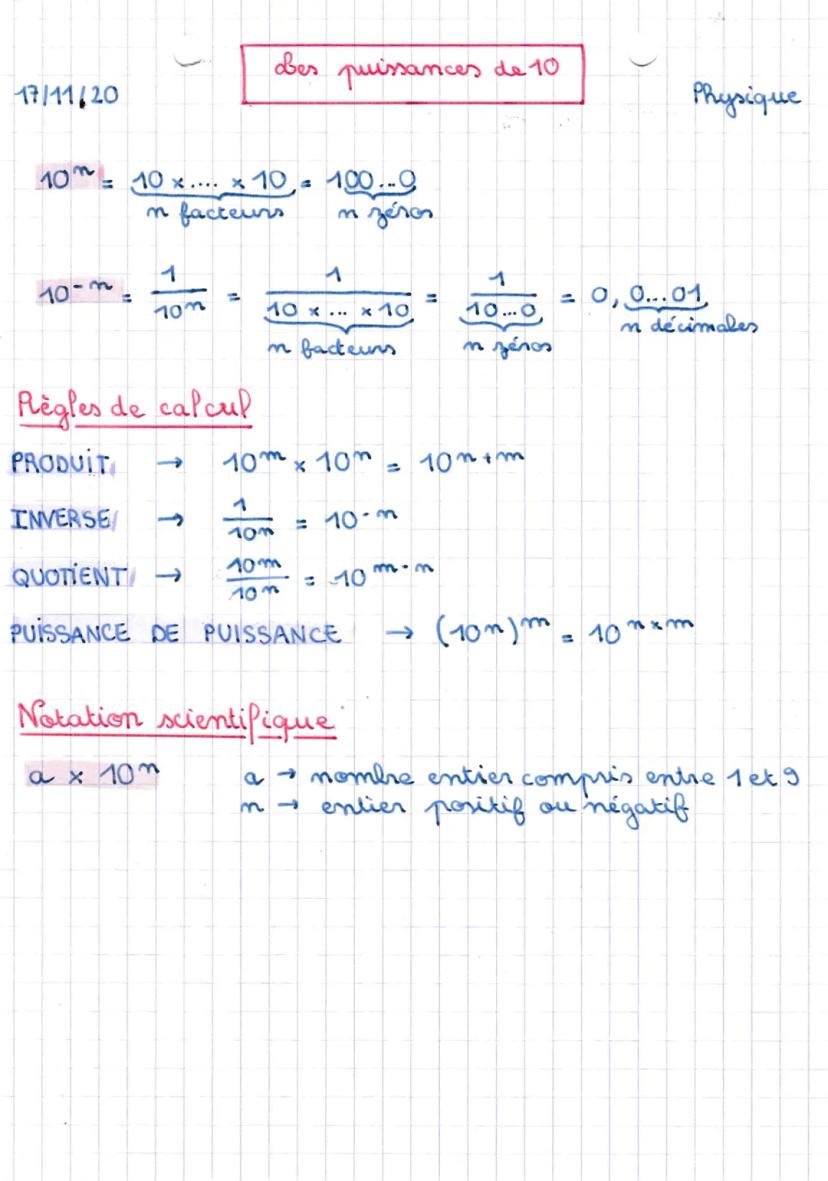 Les puissances de 10
17/11/20
Physique
10ⁿ = 10 x .... x 10 = 100...0
n facteurs n zéros
10⁻ⁿ = 1/10ⁿ = 1/(10 x ... x 10) = 1/(10...0) = 0, 0...01
n facteurs n zéros n décimales
Règles de calcul
PRODUIT → 10ᵐ x 10ⁿ = 10ⁿ⁺ᵐ
INVERSE → 1/10ⁿ = 10⁻ⁿ
QUOTIENT → 10ᵐ/10ⁿ = 10ᵐ⁻ⁿ
PUISSANCE DE PUISSANCE → (10ⁿ)ᵐ = 10ⁿ ˣ ᵐ
Notation scientifique
a x 10ⁿ a → nombre entier compris entre 1 et 9
n → entier positif ou négatif